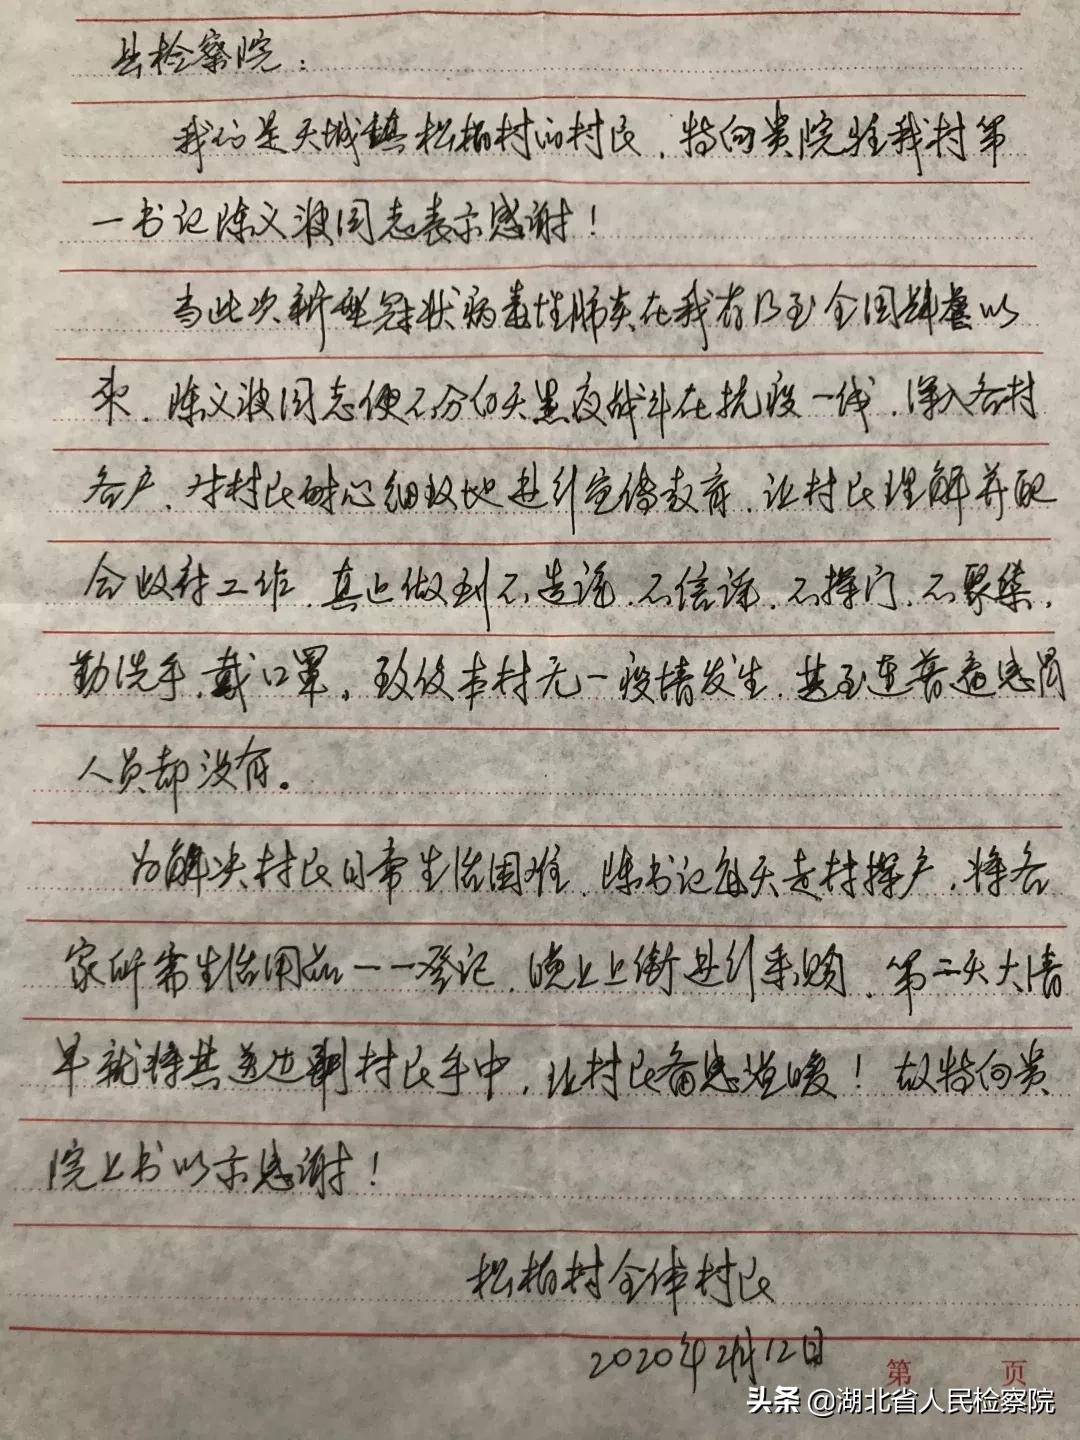 县检察院：
我们是天城镇松柏村的村民，特向贵院驻我村第
一书记陈义波同志表示感谢！
当此次新型冠状病毒性肺炎在我省乃至全国肆虐以
来，陈义波同志便不分白天黑夜战斗在抗疫一线，深入各村
各户，对村民耐心细致地进行宣传教育，让村民理解并配
合政府工作，真正做到不造谣，不信谣，不串门，不聚集，
勤洗手，戴口罩。致使本村无一疫情发生，甚至连普通感冒
人员都没有。
为解决村民日常生活困难，陈书记每天走村探户，将各
家所需生活用品一一登记，晚上上街进行采购，第二天大清
早就将其送达到村民手中，让村民备感温暖！故特向贵
院上书以示感谢！
松柏村全体村民
2020年2月12日
第 页
头条 @湖北省人民检察院